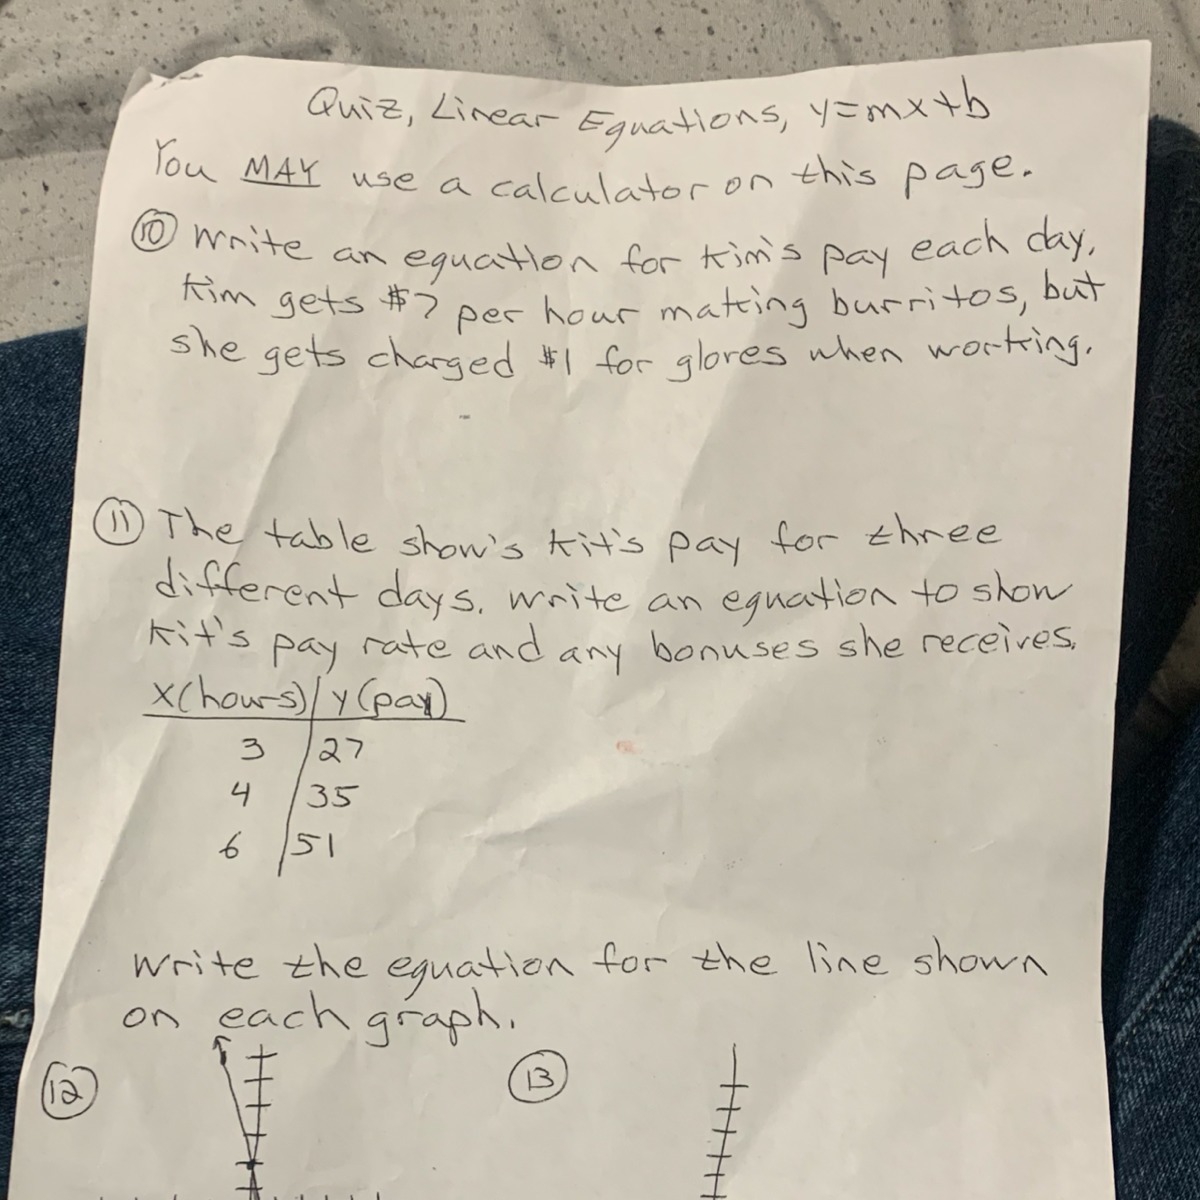 Quiz, Linear Equations, y=mx+b
You MAY use a calculator on this page.
10 Write an equation for Kim's pay each day.
Kim gets $7 per hour making burritos, but
she gets charged $1 for gloves when working.
11 The table show's Kit's pay for three
different days. Write an equation to show
Kit's pay rate and any bonuses she receives.
x(hours) y(pay)
3 27
4 35
6 51
Write the equation for the line shown
on each graph.
12 13